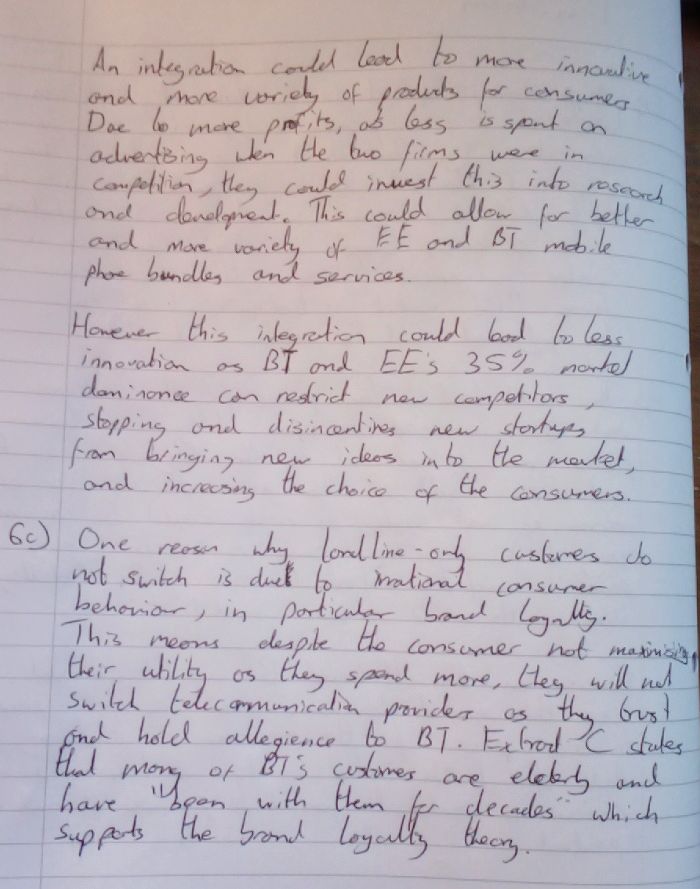 An integration could lead to more innovative
and more variety of products for consumers
Due to more profits, as less is spent on
advertising when the two firms were in
competition, they could invest this into research
and development. This could allow for better
and more variety of EE and BT mobile
phone bundles and services.
However this integration could lead to less
innovation as BT and EE's 35% market
dominance can restrict new competitors,
stopping and disincentives new startups,
from bringing new ideas into the market,
and increasing the choice of the consumers.
6c) One reason why landline-only customers do
not switch is due to irrational consumer
behaviour, in particular brand loyalty.
This means despite the consumer not maximising
their utility as they spend more, they will not
switch telecommunication providers as they trust
and hold allegience to BT. Extract C states
that many of BT's customers are elderly and
have "been with them for decades" which
supports the brand loyalty theory.